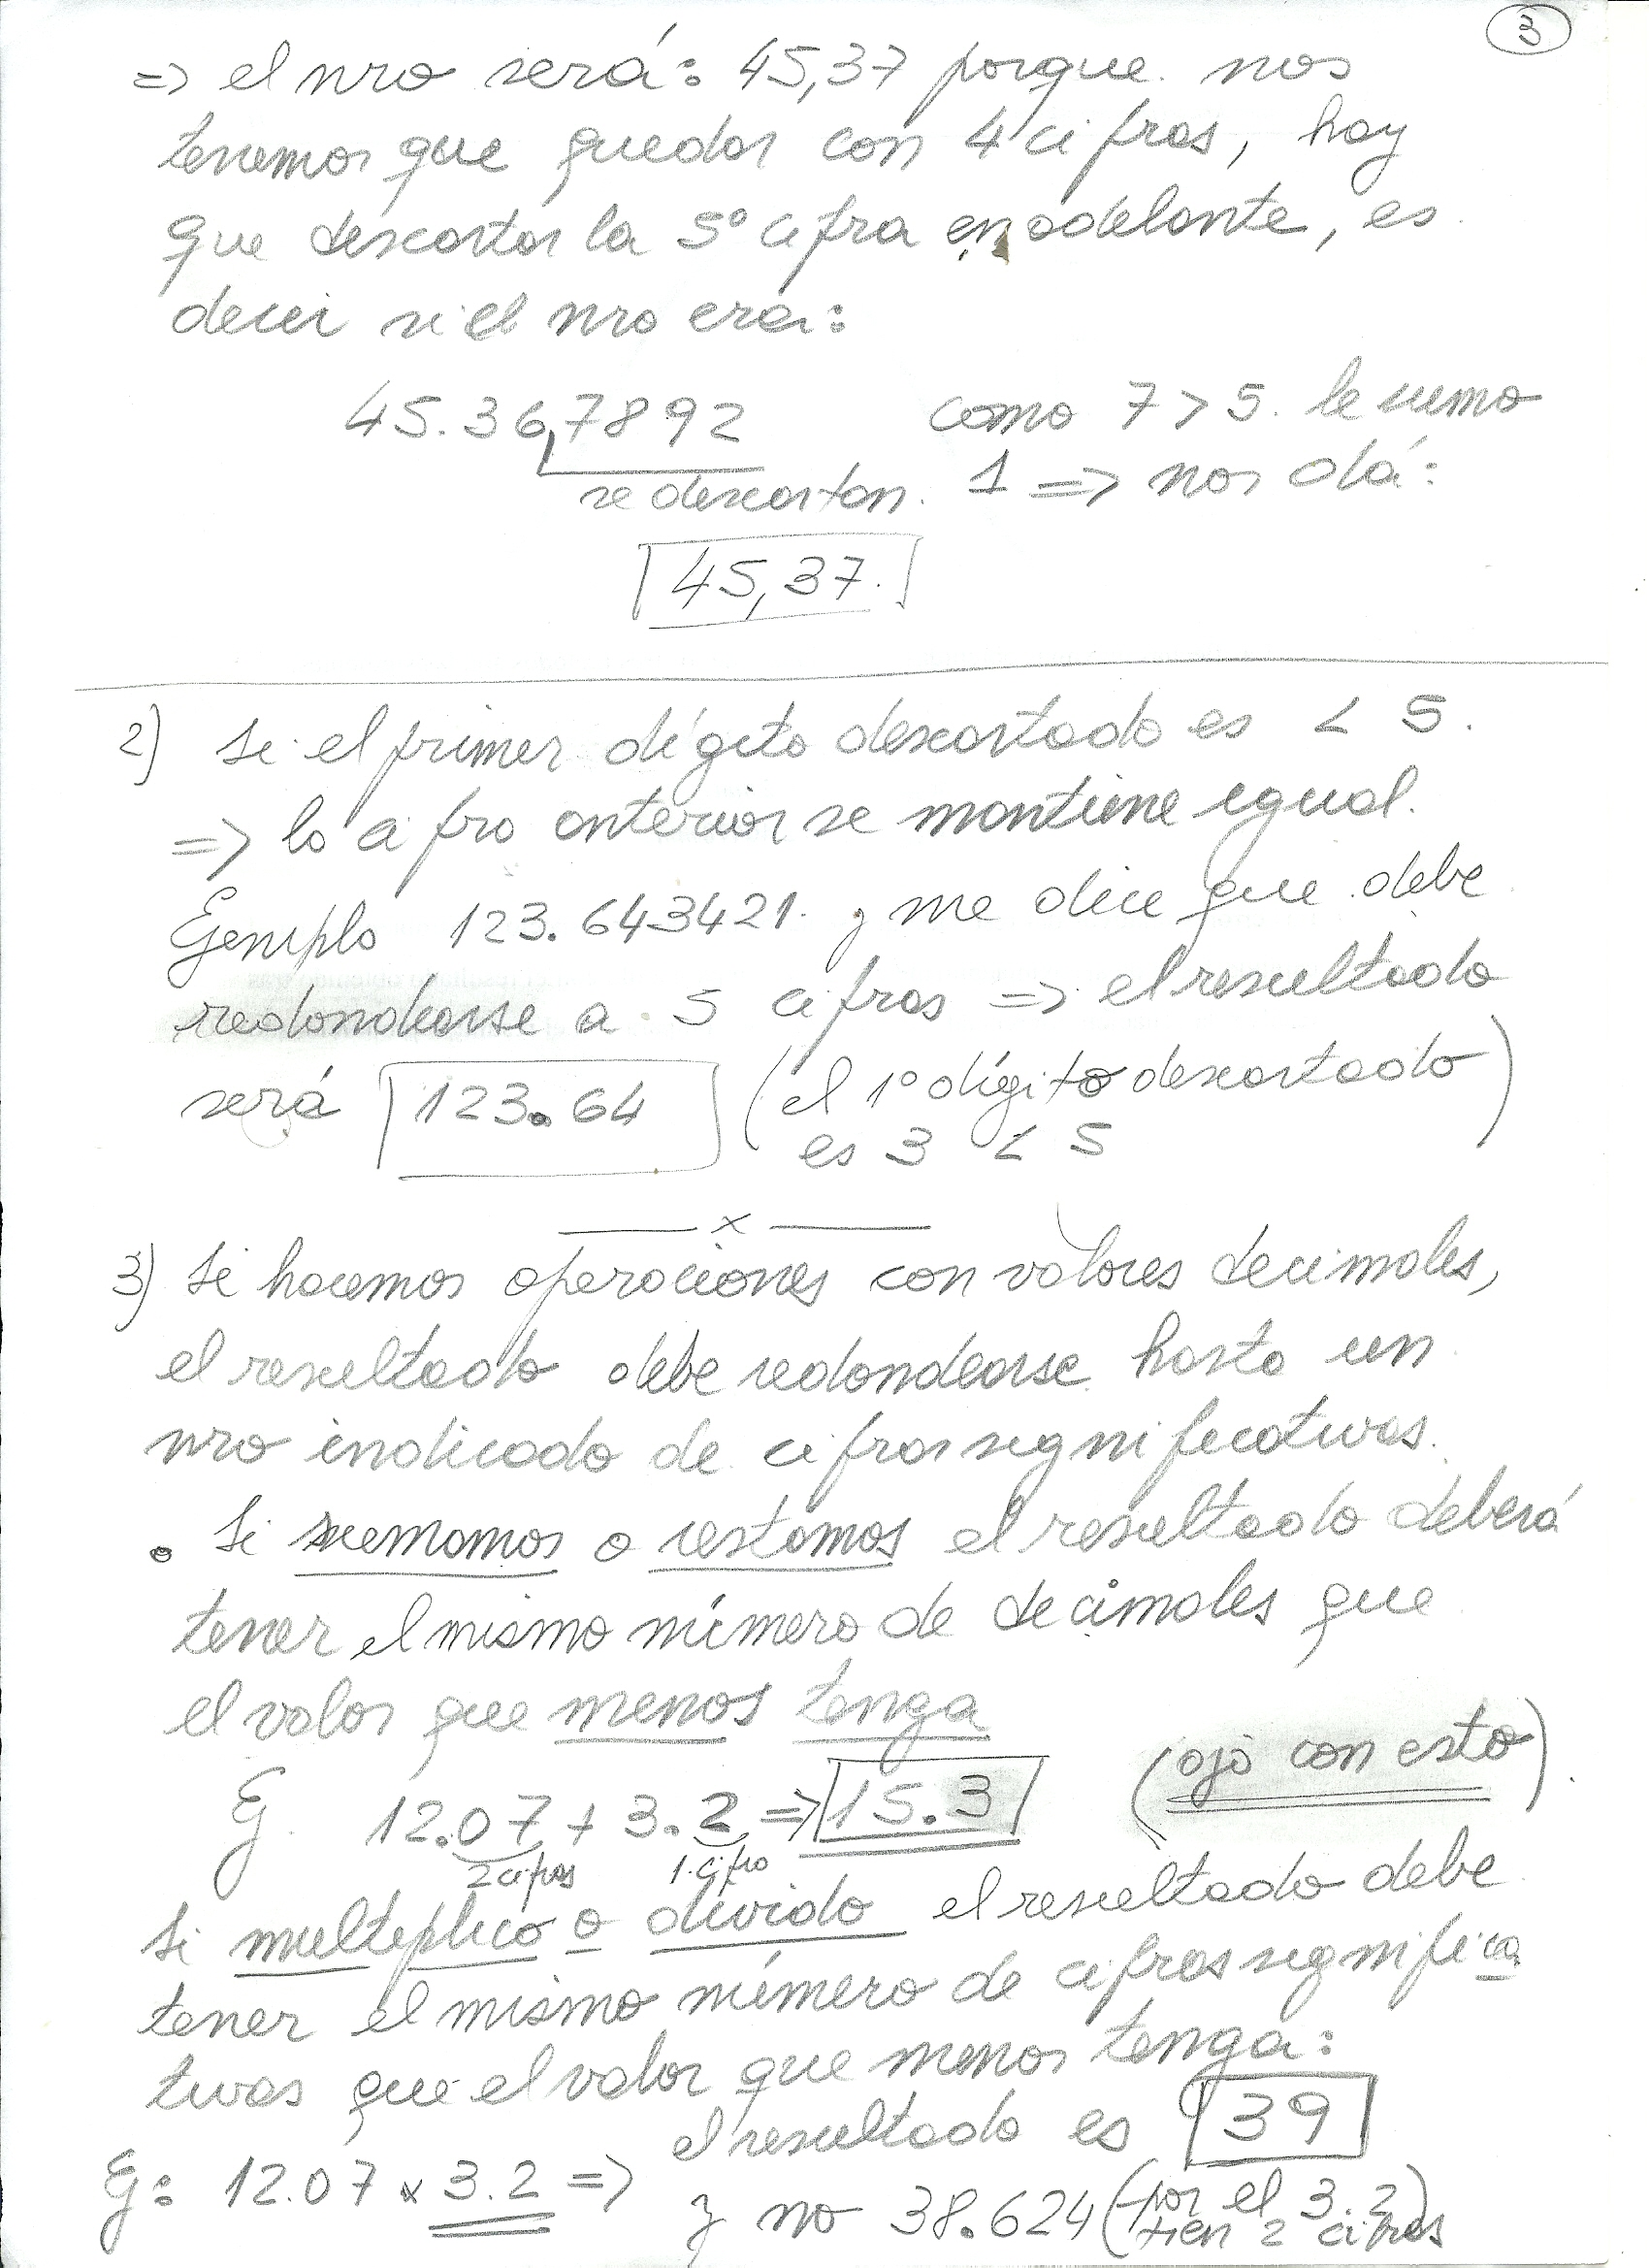 3
=> el nro será: 45,37 porque nos
tenemos que quedar con 4 cifras, hay
que descartar la 5° cifra en adelante, es
decir si el nro era:
45.36,7892 como 7 > 5 le sumo
se descartan. 1 => nos dá:
45,37.
2) Si el primer dígito descartado es < 5.
=> la cifra anterior se mantiene igual.
Ejemplo 123.643421. y me dice que debe
redondearse a 5 cifras => el resultado
será 123.64 (el 1° dígito descartado
es 3 < 5)
x
3) Si hacemos operaciones con valores decimales,
el resultado debe redondearse hasta un
nro indicado de cifras significativas.
• Si sumamos o restamos el resultado deberá
tener el mismo número de decimales que
el valor que menos tenga
Ej. 12.07 + 3.2 => 15.3 (ojo con esto).
2 cifras 1 cifra
Si multiplico o divido el resultado debe
tener el mismo número de cifras significa
tivas que el valor que menos tenga:
el resultado es 39
Ej: 12.07 x 3.2 =>
y no 38.624 (por el 3.2
tien 2 cifras)